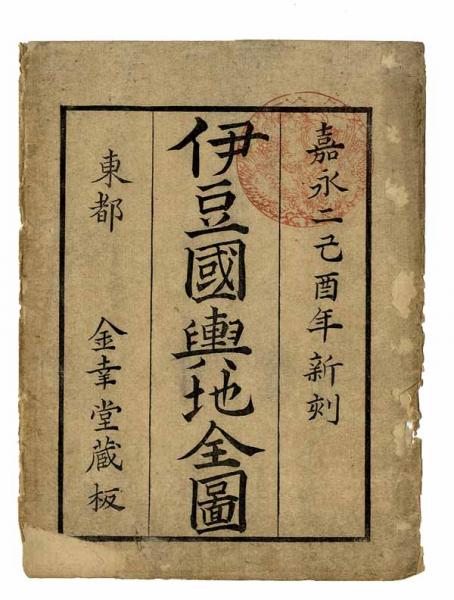 嘉永二己酉年新刻
伊豆國輿地全圖
東都 金幸堂蔵板